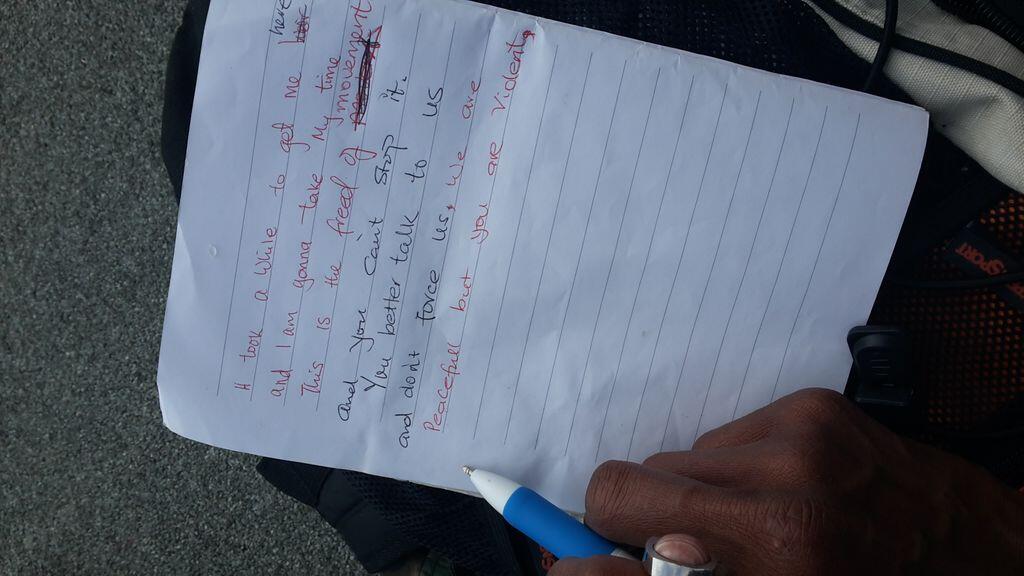 It took a while to get me here
and I am gonna take My time
This is the freed of movement
and you you can't stop it.
You better talk to us
and don't force us, we are
Peacefull but you are Violent,
SPORT